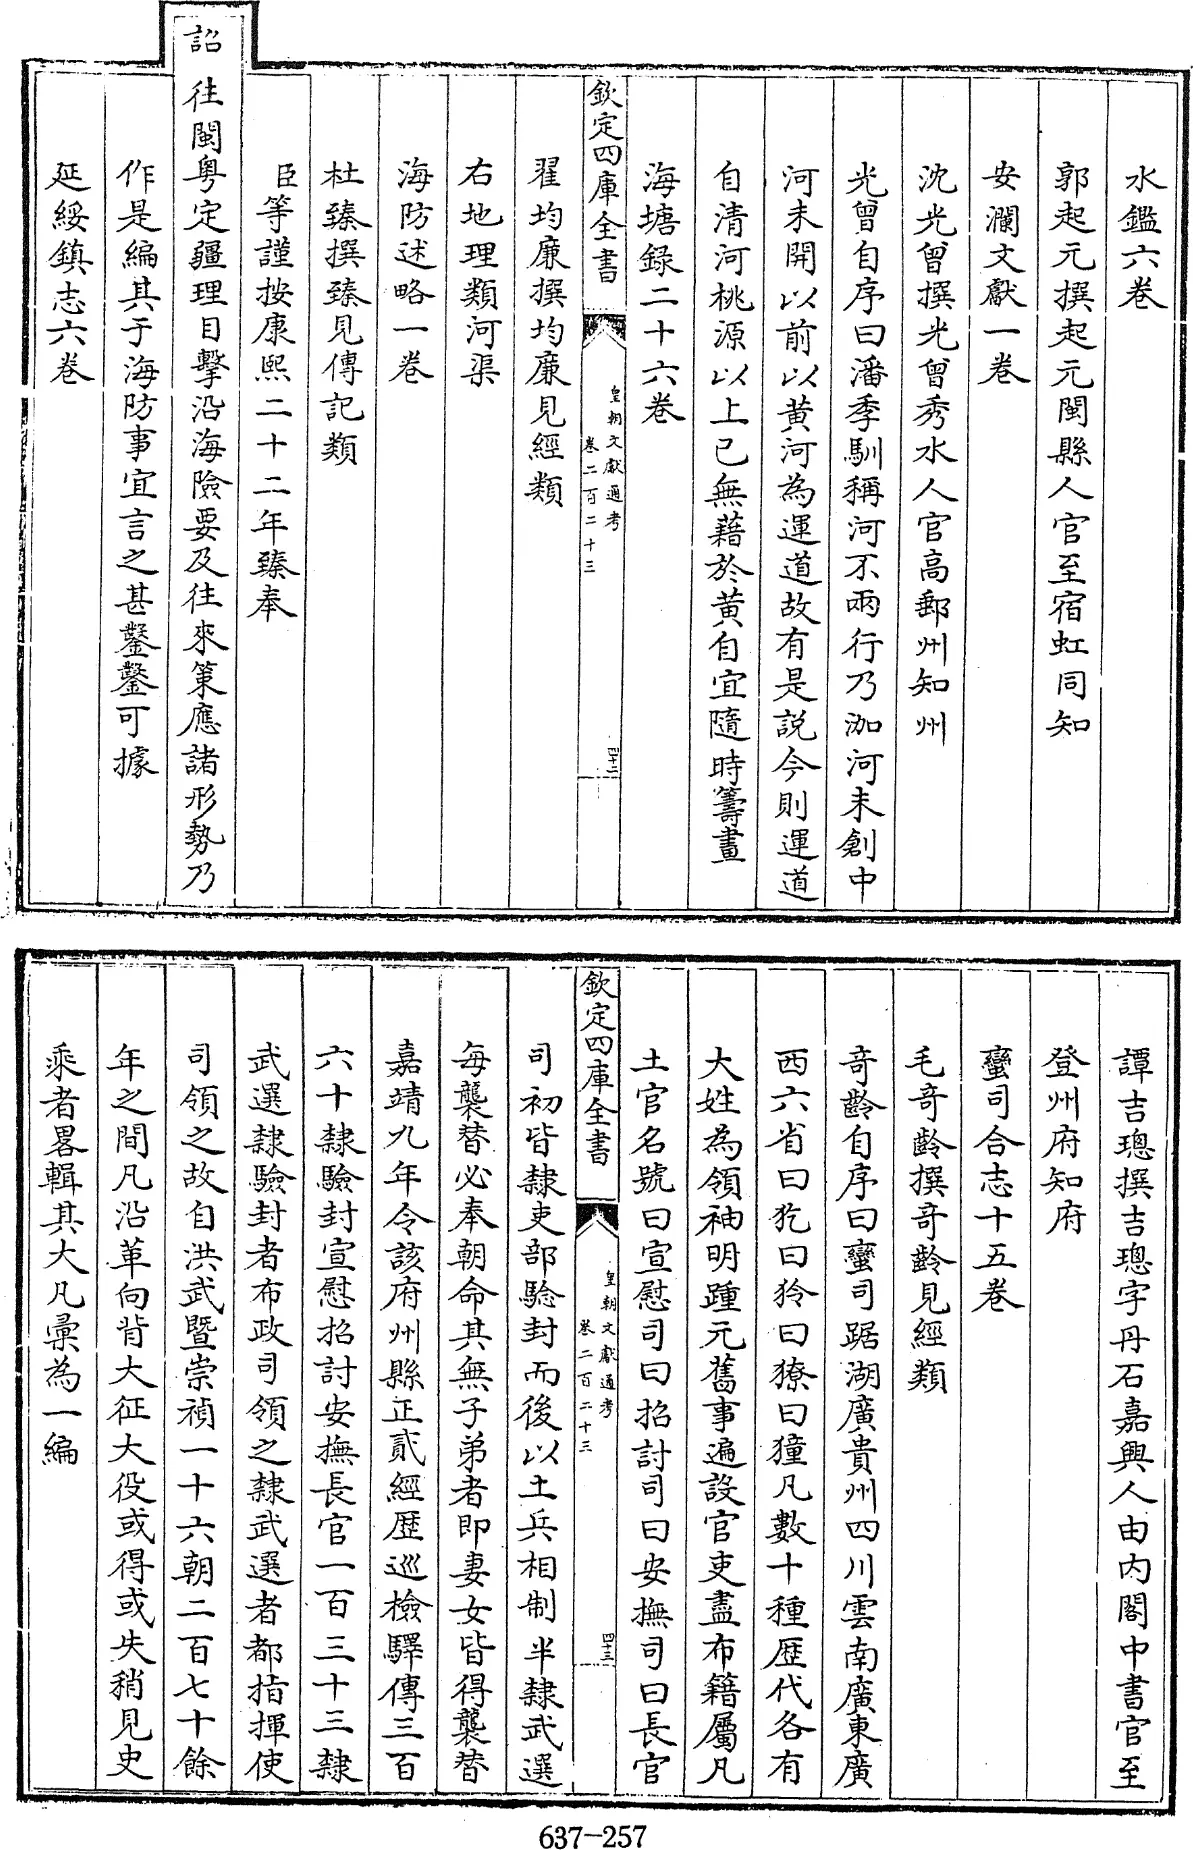 水鑑六卷
郭起元撰起元閩縣人官至宿虹同知
安瀾文獻一卷
沈光曾撰光曾秀水人官高郵州知州
光曾自序曰潘季馴稱河不兩行乃泇河未創中
河未開以前以黃河為運道故有是説今則運道
自清河桃源以上已無藉於黃自宜隨時籌畫
海塘錄二十六卷
欽定四庫全書
皇朝文獻通考
卷二百二十三
四十二
翟均廉撰均廉見經類
右地理類河渠
海防述略一卷
杜臻撰臻見傳記類
臣等謹按康熙二十二年臻奉
詔往閩粵定疆理目擊沿海險要及往來策應諸形勢乃
作是編其于海防事宜言之甚鑿鑿可據
延綏鎮志六卷
譚吉璁撰吉璁字丹石嘉興人由内閣中書官至
登州府知府
蠻司合志十五卷
毛奇齡撰奇齡見經類
奇齡自序曰蠻司踞湖廣貴州四川雲南廣東廣
西六省曰犵曰狑曰獠曰獞凡數十種歴代各有
大姓為領袖明踵元舊事遍設官吏盡布籍屬凡
土官名號曰宣慰司曰招討司曰安撫司曰長官
欽定四庫全書
皇朝文獻通考
卷二百二十三
四十三
司初皆隸吏部驗封而後以土兵相制半隸武選
每襲替必奉朝命其無子弟者即妻女皆得襲替
嘉靖九年令該府州縣正貳經歴巡檢驛傳三百
六十隸驗封宣慰招討安撫長官一百三十三隸
武選隸驗封者布政司領之隸武選者都指揮使
司領之故自洪武暨崇禎一十六朝二百七十餘
年之間凡沿革向背大征大役或得或失稍見史
乘者畧輯其大凡彙為一編
637-257